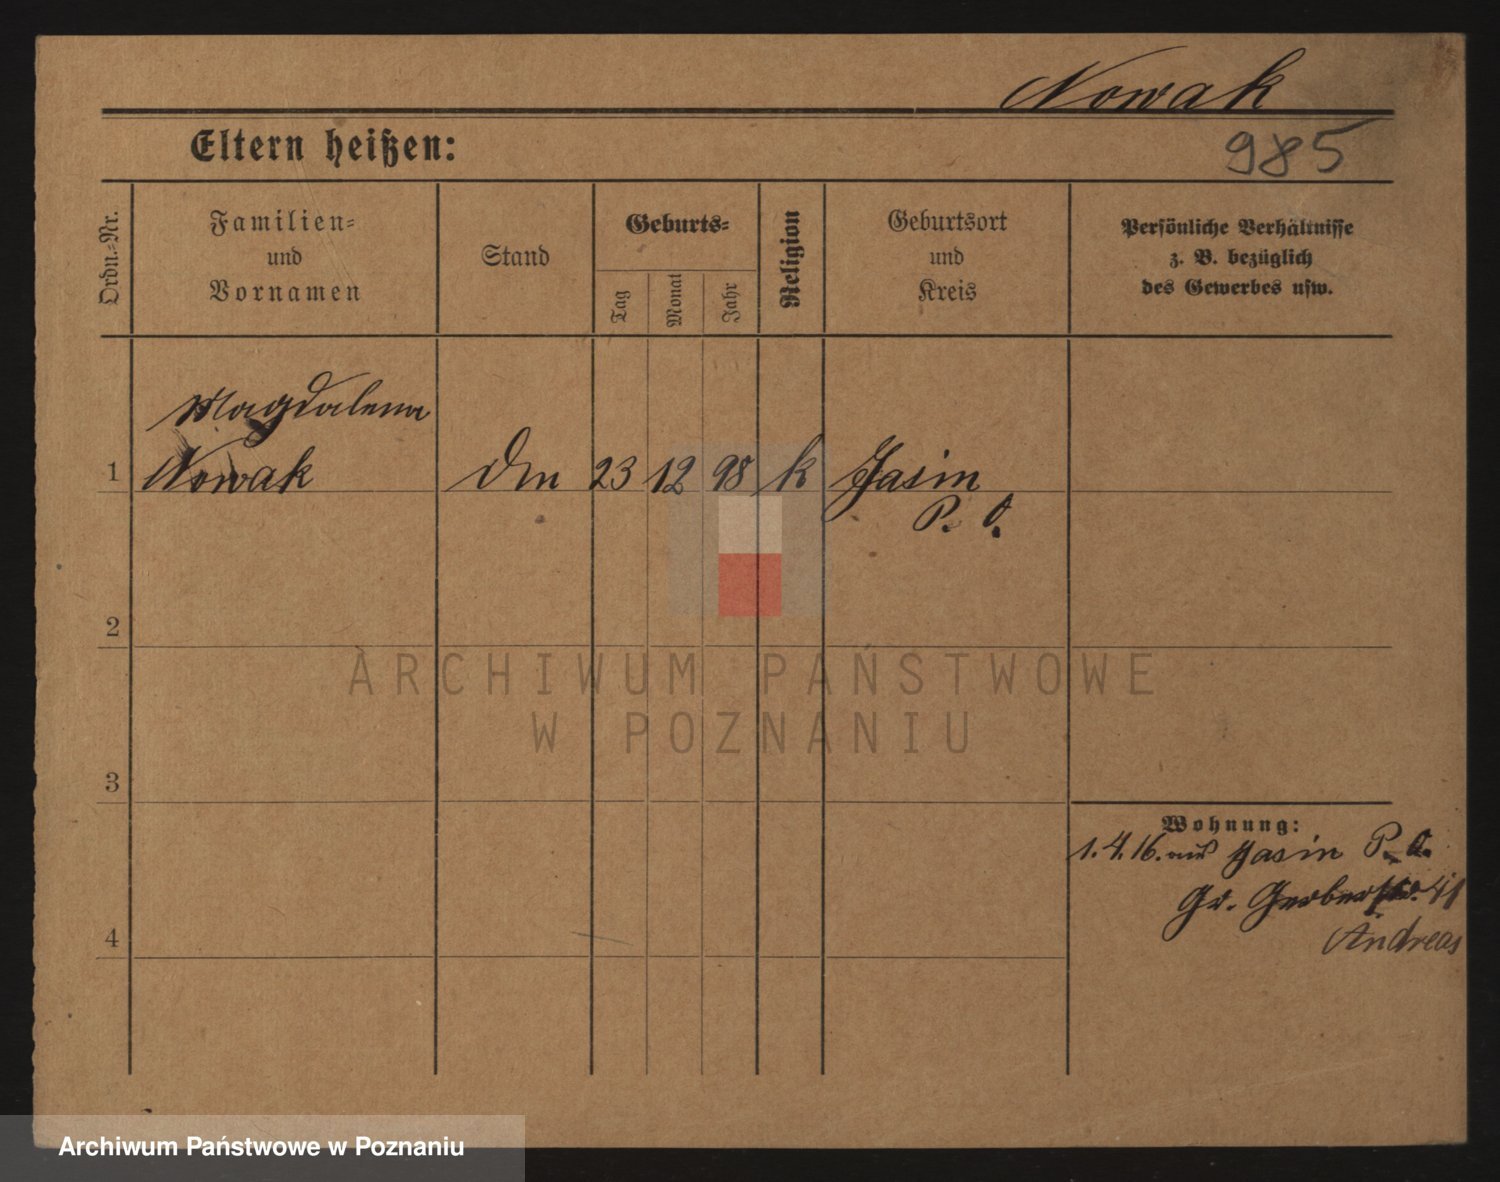 Nowak
Eltern heißen:
985
Ordn.-Nr.
Familien-
und
Vornamen
Stand
Geburts-
Tag
Monat
Jahr
Religion
Geburtsort
und
Kreis
Persönliche Verhältnisse
z. B. bezüglich
des Gewerbes usw.
Magdalena
1 Nowak Dm 23 12 98 k Jasin
P. O.
2
3
4
Wohnung:
1.4.16. aus Jasin P. O.
Gr. Gerberstr. 41
Andreas
ARCHIWUM PAŃSTWOWE
W POZNANIU
Archiwum Państwowe w Poznaniu